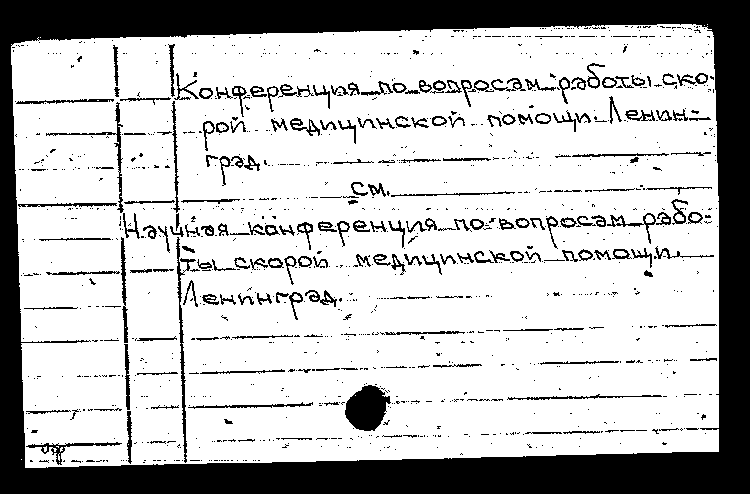 Конференция по вопросам работы ско-
рой медицинской помощи. Ленин-
град.
см.
Научная конференция по вопросам рабо-
ты скорой медицинской помощи.
Ленинград.